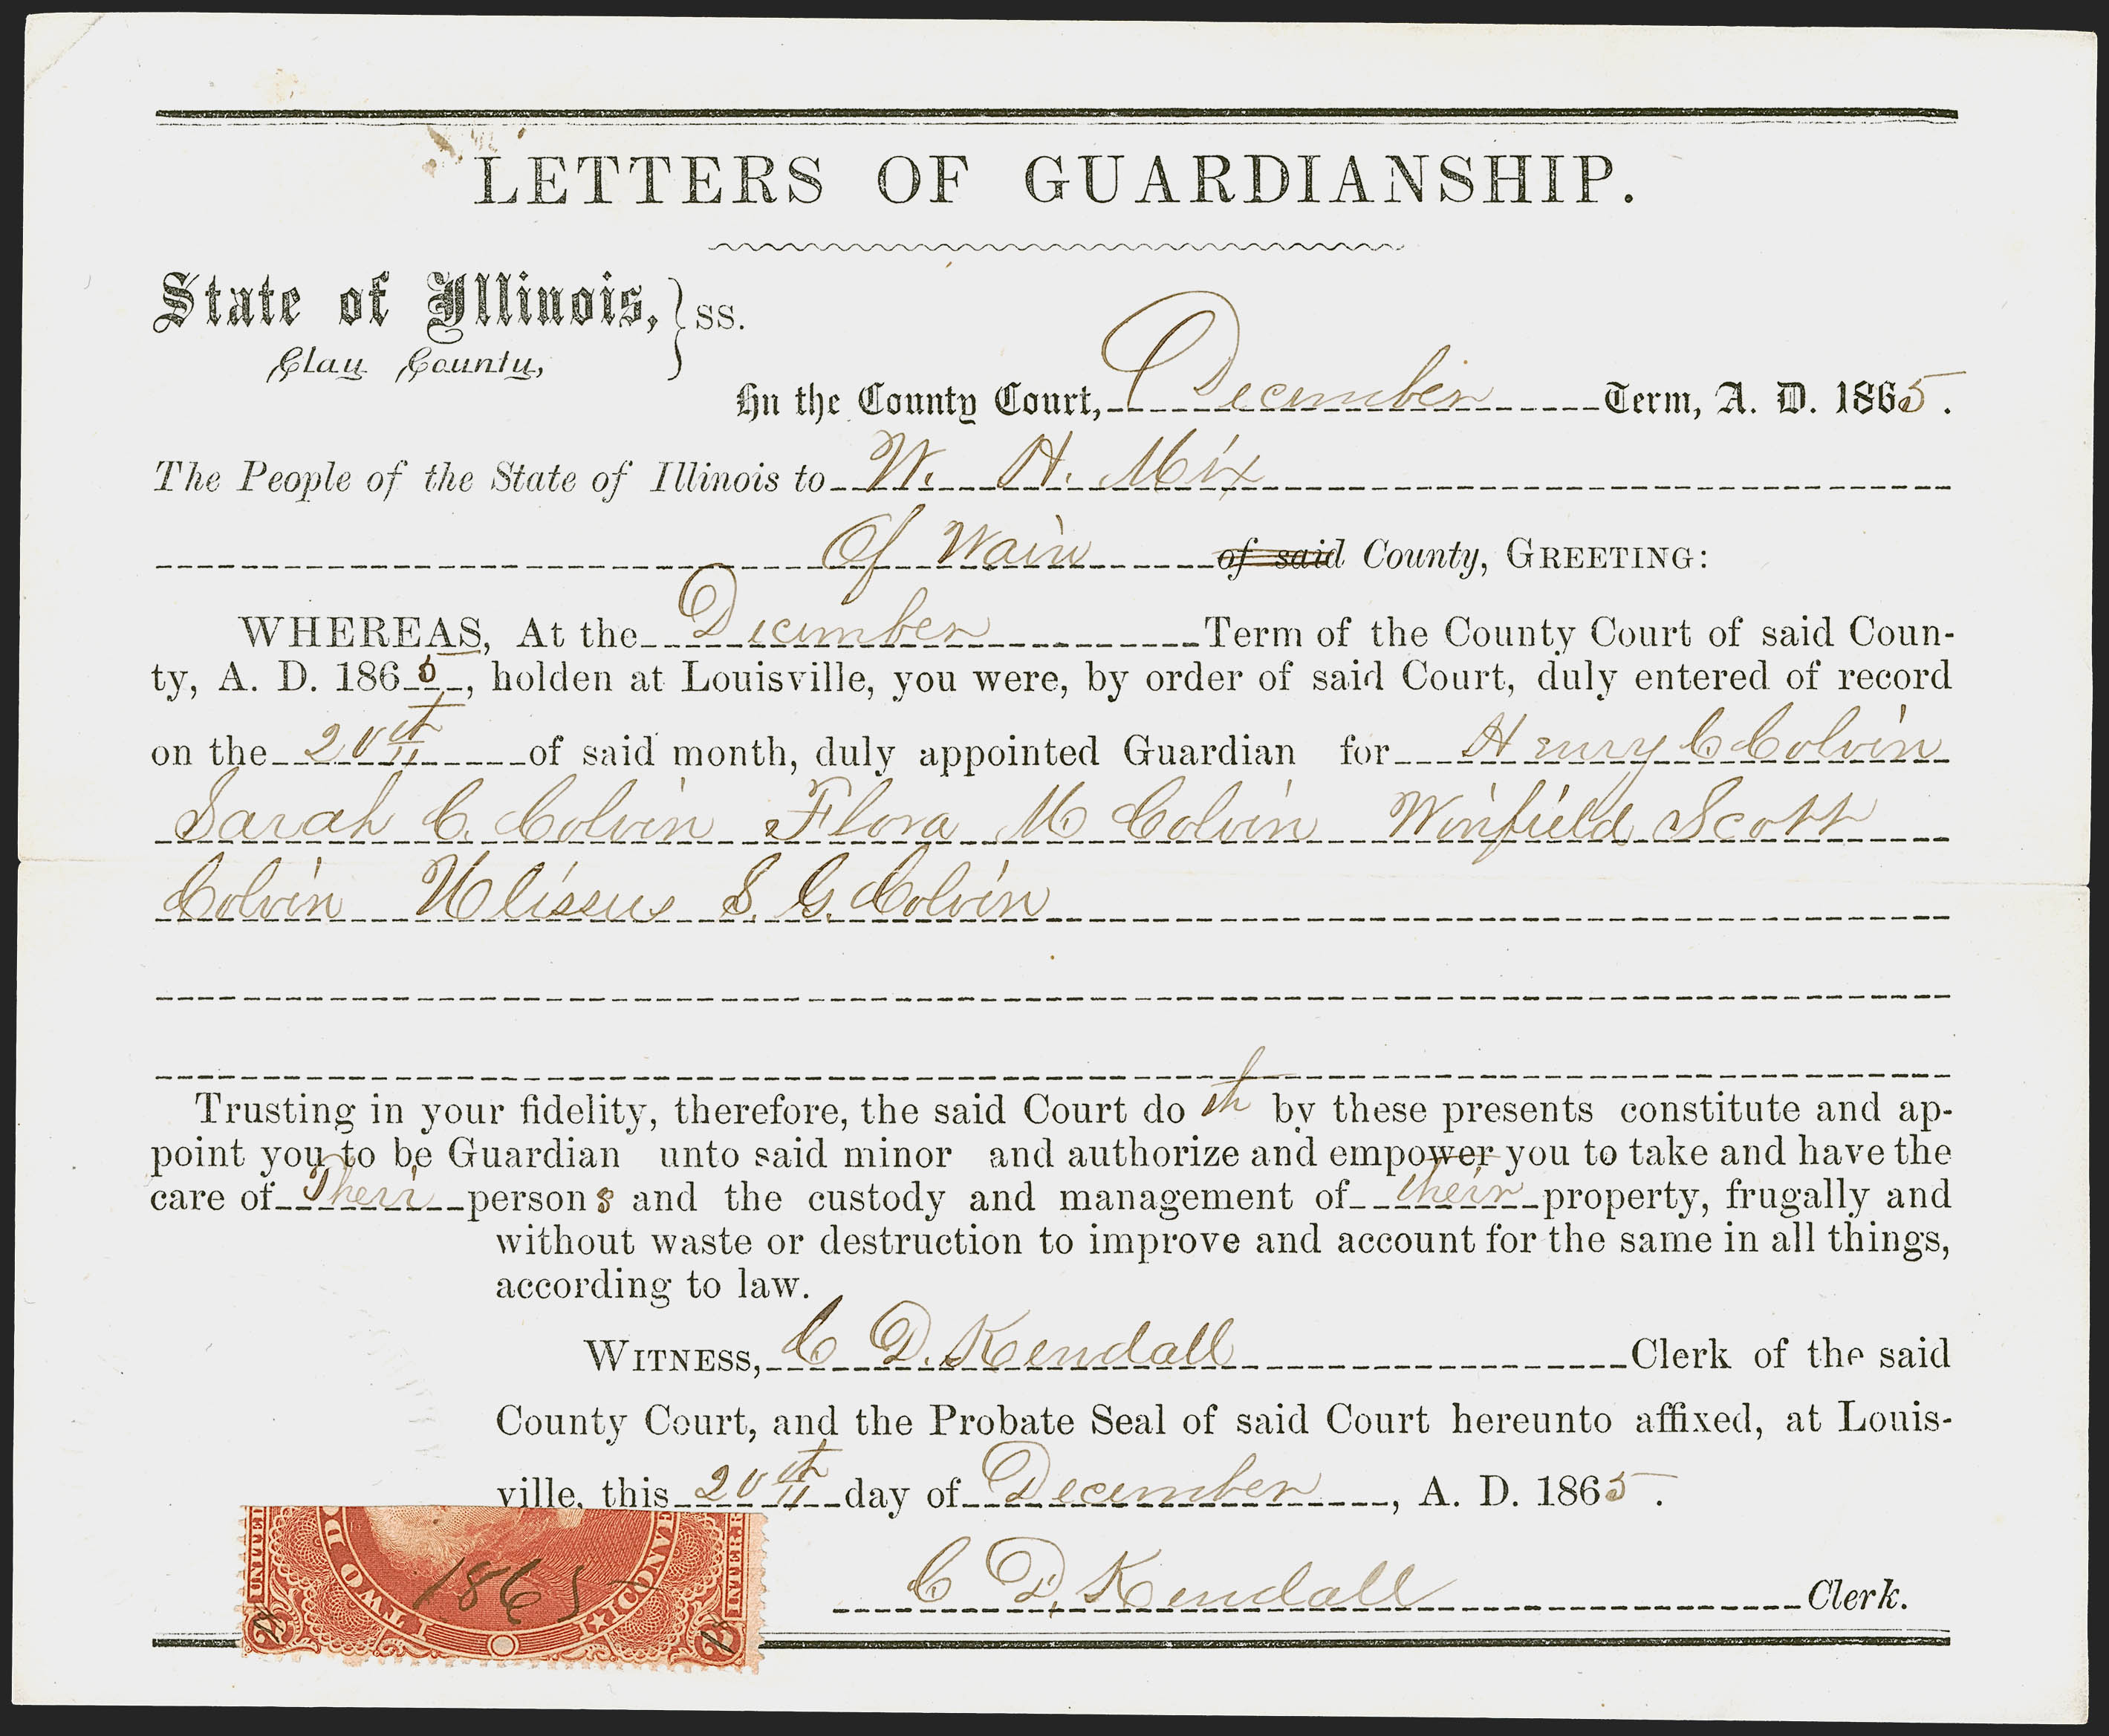 LETTERS OF GUARDIANSHIP.
State of Illinois, } ss.
Clay County,
In the County Court, December Term, A. D. 1865.
The People of the State of Illinois to W. H. Mix
Of Wain of said County, GREETING:
WHEREAS, At the December Term of the County Court of said Coun-
ty, A. D. 1865, holden at Louisville, you were, by order of said Court, duly entered of record
on the 20th of said month, duly appointed Guardian for Henry C Colvin
Sarah C. Colvin Flora M Colvin Winfield Scott
Colvin Ulissus S. G. Colvin
Trusting in your fidelity, therefore, the said Court do th by these presents constitute and ap-
point you to be Guardian unto said minor and authorize and empower you to take and have the
care of Theri person s and the custody and management of their property, frugally and
without waste or destruction to improve and account for the same in all things,
according to law.
WITNESS, C D. Kendall Clerk of the said
County Court, and the Probate Seal of said Court hereunto affixed, at Louis-
ville, this 20th day of December, A. D. 1865.
C D. Kendall Clerk.
UNITED
INTER.R
TWO DO
1865